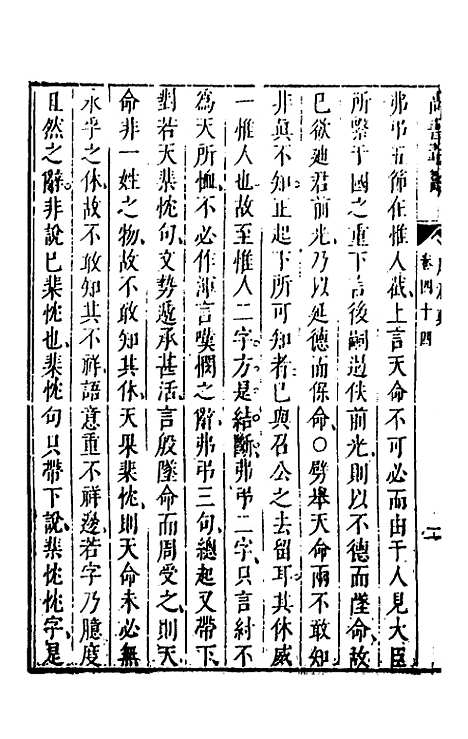 弗弔五節在惟人截上言天命不可必而由于人見大臣
所繫于國之重下言後嗣遏佚前光則以不德而墜命故
已欲迪君前光乃以延德而保命○劈舉天命兩不敢知
非眞不知正起下所可知者已與召公之去留耳其休威
一惟人也故至惟人二字方是結斷弗弔二字只言紂不
為天所恤不必作渾言嘆憫之辭弗弔三句總起又帶下
對若天棐忱句文勢遞承甚活言殷墜命而周受之則天
命非一姓之物故不敢知其休天果棐忱則天命未必無
永孚之休故不敢知其不祥語意重不祥邊若字乃臆度
且然之辭非說已棐忱也棐忱句只帶下說棐忱忱字是
卷四十四